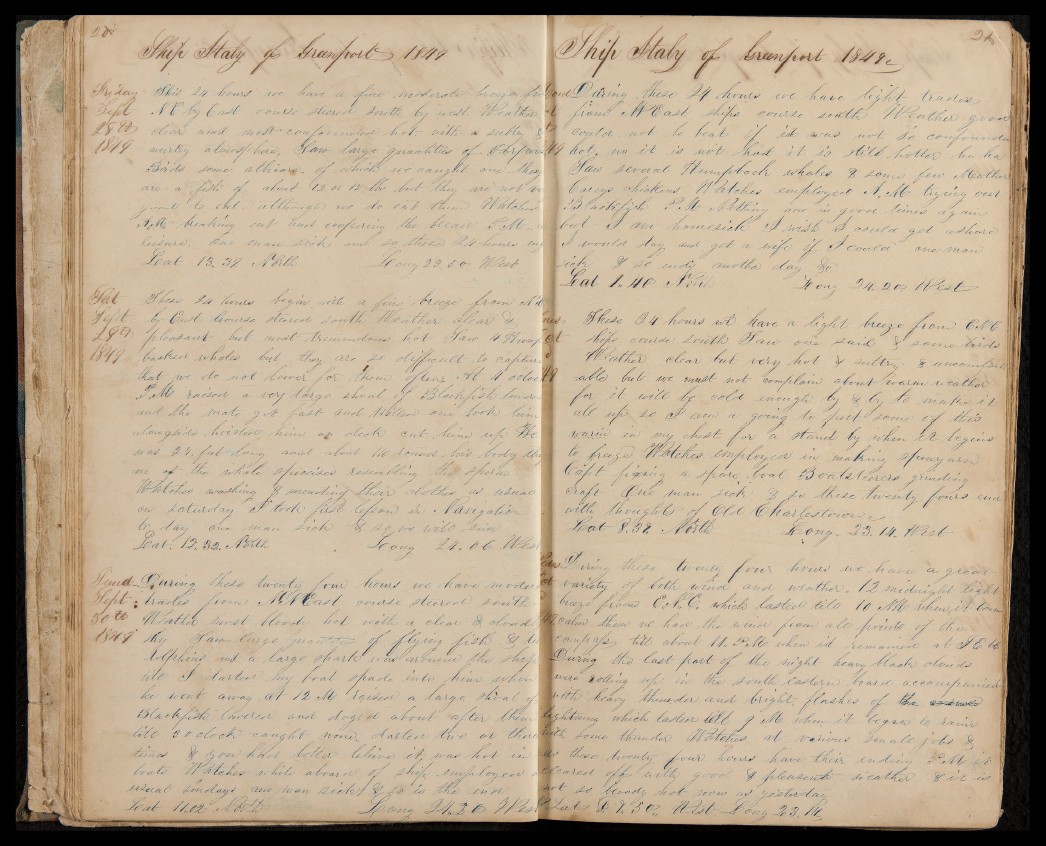 Ship Italy of Greenport 1849
Friday Sept 28th 1849
This 24 hours we have a fine moderate breeze from
NE by East course steered South by west Weather
clear and most confounded hot with a sultry &
murky atmosphere. Saw large quantities of
Birds some of which we caught one. They
are a fish of about 15 or 12 lbs but they are not
good to eat although we do eat them Watches
A.M. breaking out and coopering the P.M.
leisure. One man sick and so these 24 hours end
Lat 13.39 North Long 23.50 West
Sat Sept 29th 1849
These 24 hours begin with a fine breeze from N
by East Course steered south Weather clear &
pleasant but most tremendous hot Saw 4 Hump
backed whales but they are so difficult to capture
that we do not lower for them often. At 4 oclock
P.M. raised a very large shoal of Blackfish lowered
and the mate got fast and killed one took him
alongside hoisted him on deck cut him up He
was 24 feet long and about 10 round his body
one of the whale species resembling the sperm
Watches washing & mending their clothes as usual
on Saturday I took first lesson in Navigation
to day one man sick & so we will end
Lat. 12.32. North Long 24.06 West
Sund Sept 30th 1849
During these twenty four hours we have moderate
trades from NNEast course steered south
Weather most bloody hot with a clear & cloud
sky Saw large quantities of flying fish &
dolphins and a large shark was around the ship
till I darted my boat spade into him when
he went away At 12 M raised a large shoal of
Blackfish lowered and doged about after them
till 3 oclock caught none darted two or three
times & you had better believe it was hot in
boats Watches while aboard of ship employed
usual sundays one man sick & so is the end
Lat 11.02 North Long 24.20 West
Ship Italy of Greenport 1849
During these 24 hours we have light trades
from NEast ships course south Weather good
could not be beat if it was not so confounded
hot, no it is not hot it is still hotter ha ha
Saw several Humpback whales & some few Mother
Careys chickens Watches employed A.M. trying out
Blackfish P.M. Nothing now in good times again
but I am homesick I wish I could get ashore
I would stay and get a wife if I could one man
sick & so ends another day &c
Lat 1.40 North Long 24.20 West
These 24 hours we have a light breeze from ENE
ships course South Saw one sail & some birds
Weather clear but very hot & sultry & uncomfort
able but we must not complain about warm weather
for it will be cold enough by & by to make it
all up so I am a going to put some of this
warm in my chest for a stand by when it begins
to freeze Watches employed in making spunyarn
Capt fixing a spare boat Boatsteerers grinding
craft One man sick & so these twenty fours end
with thoughts of Old Charlestown
Lat 8.38 North Long. 23.14 West
During these twenty four hours we have a great
variety of both wind and weather. 12 midnight light
breeze from E.N.E. which lasted till 10 AM when it became
calm then we had the wind from all points of the
compass till about 11 P.M when it remained at
During the last part of the night heavy black clouds
were rolling up in the south eastern board accompanied
with heavy thunder and bright flashes of the
lightning which lasted till 9 M when it began to rain
with some thunder Watches at various small jobs &
as these twenty four hours have their ending P.M it
cleared off with good & pleasant weather & it is
not so bloody hot now as yesterday
Long 23.14